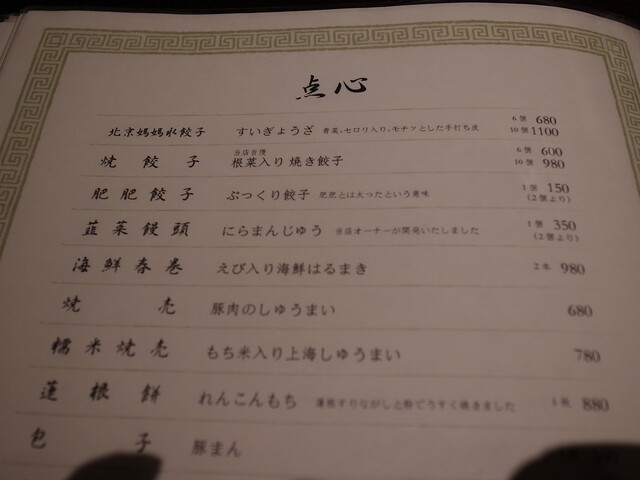 点心
北京媽媽水餃子 すいぎょうざ 青菜、セロリ入り、モチッとした手打ち皮 6個 680
10個 1100
焼餃子 当店自慢 根菜入り焼き餃子 6個 600
10個 980
肥肥餃子 ぷっくり餃子 肥肥とは太ったという意味 1個 150
(2個より)
韮菜饅頭 にらまんじゅう 当店オーナーが開発いたしました 1個 350
(2個より)
海鮮春巻 えび入り海鮮はるまき 2本 980
焼売 豚肉のしゅうまい 680
糯米焼売 もち米入り上海しゅうまい 780
蓮根餅 れんこんもち 蓮根すりながしと粉でうすく焼きました 1枚 880
包子 豚まん